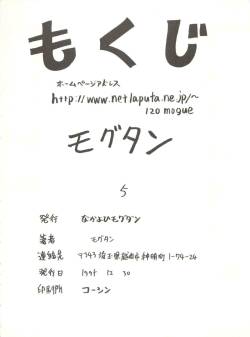 もくじ
ホームページアドレス
http://www.netlaputa.ne.jp/~
120mogue
モグタン
5
発行 なかよひモグダン
著者 モグタン
連絡先 〒343 埼玉県 市神明町1-74-26
発行日 1998 12 30
印刷所 コーシン